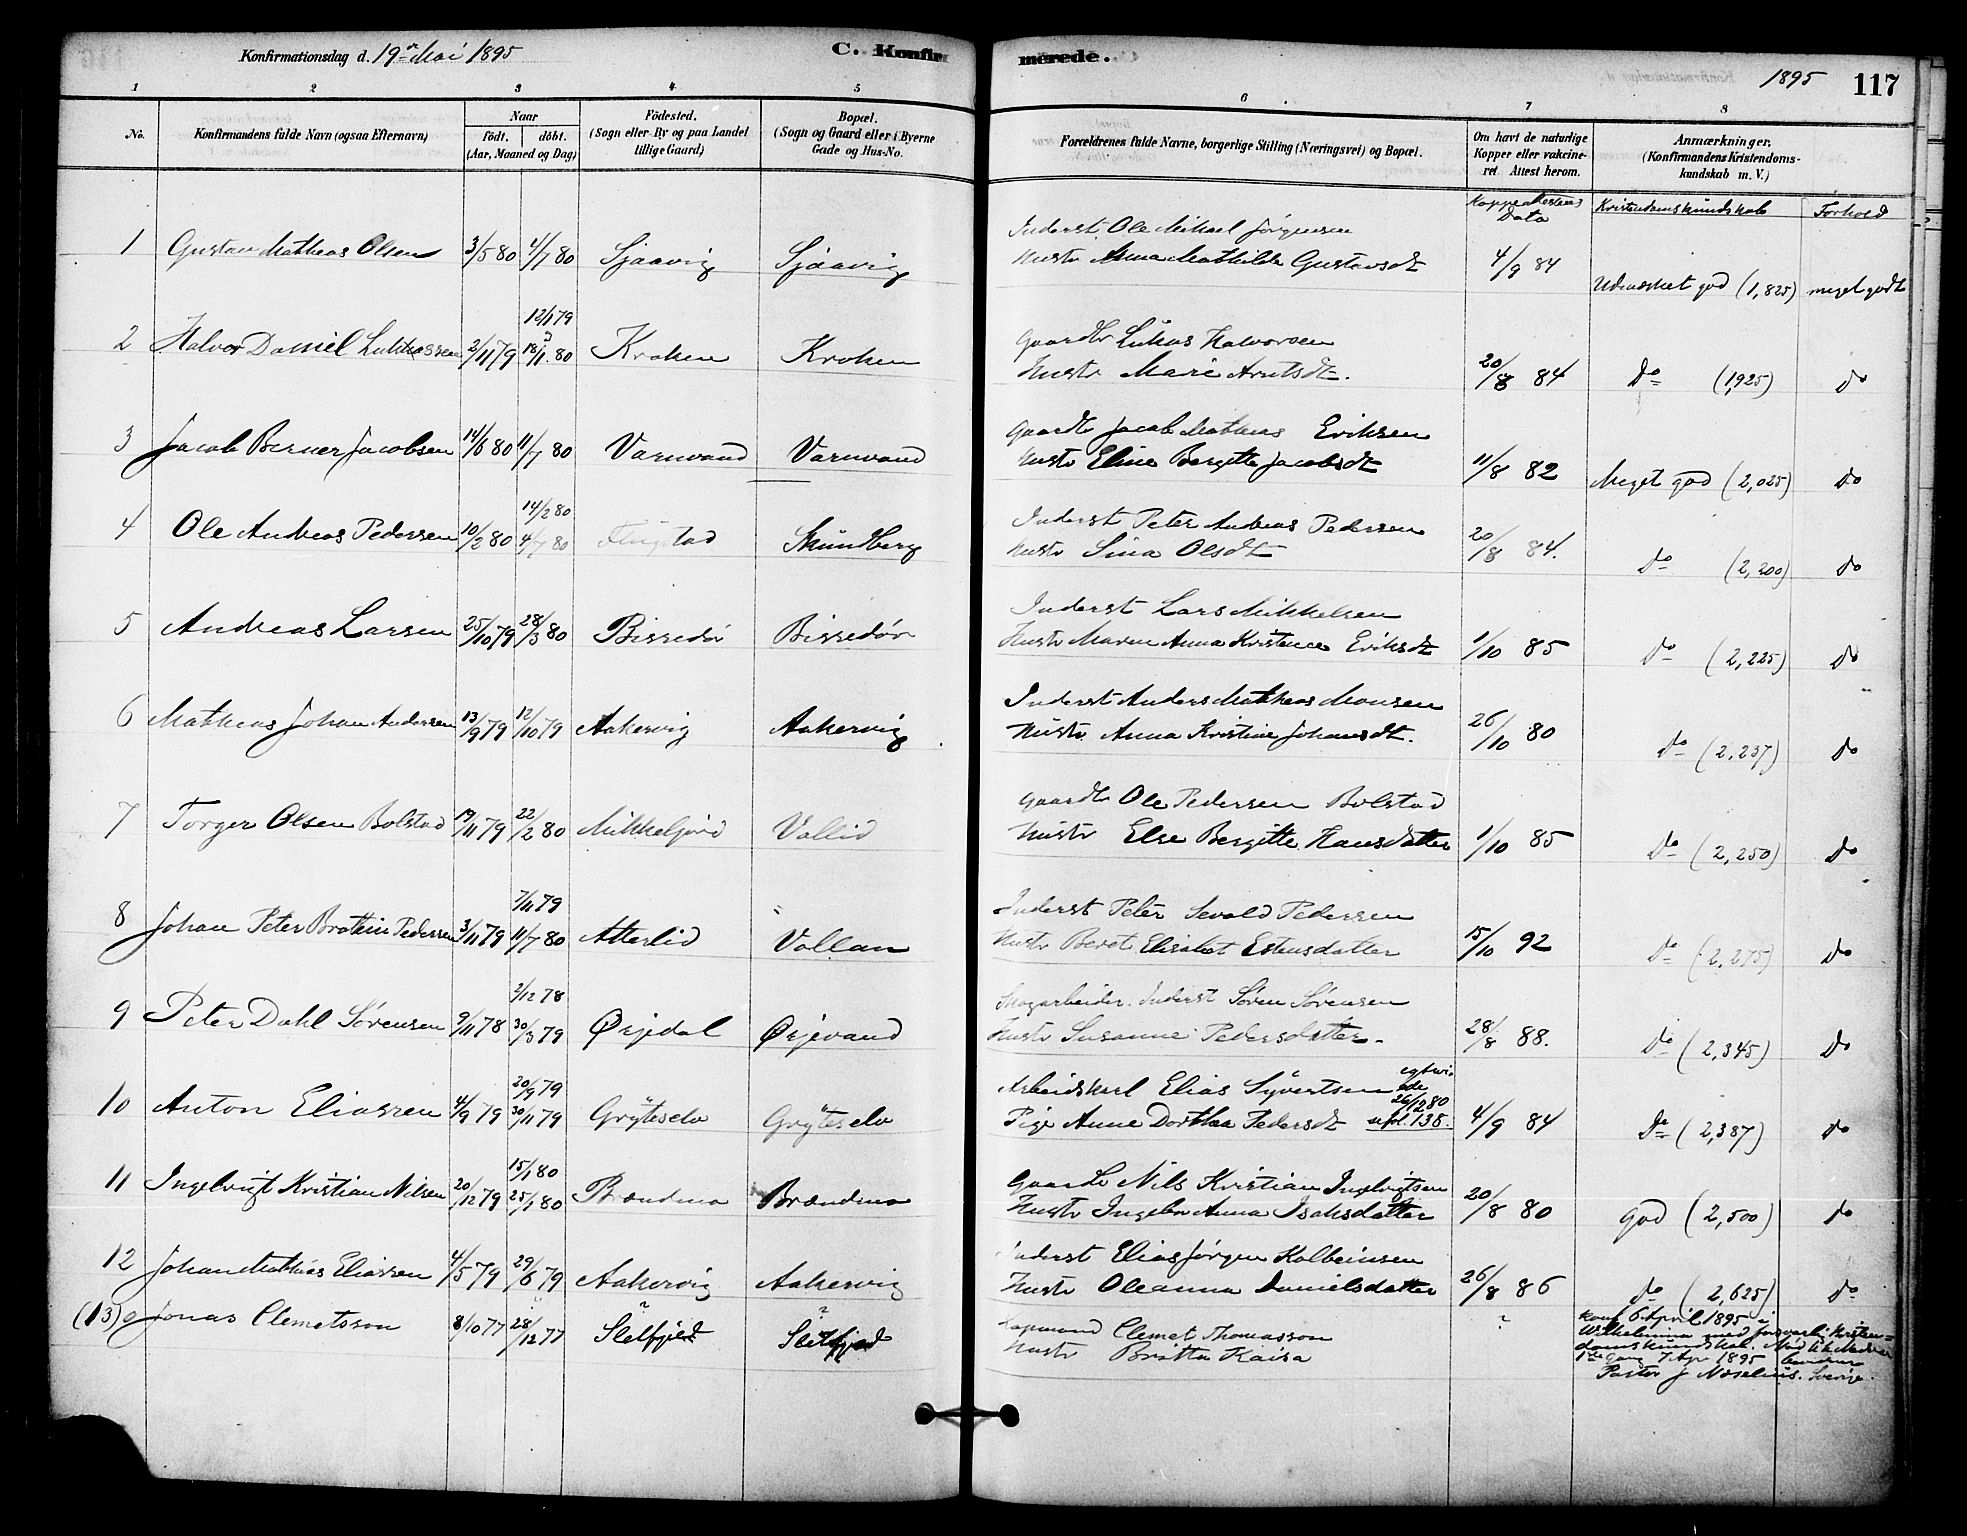 Konfirmationsdag d. 19de Mai 1895
C. Konfirmerede.
1895 117
1 2 3 4 5 6 7 8
No.
Konfirmandens fulde Navn (ogsaa Efternavn)
Naar
födt. döbt.
(Aar, Maaned og Dag)
Födested.
(Sogn eller By og paa Landet
tillige Gaard)
Bopæl.
(Sogn og Gaard eller i Byerne
Gade og Hus-No.
Forældrenes fulde Navne, borgerlige Stilling (Næringsvei) og Bopæl.
Om havt de naturlige
Kopper eller vakcine-
ret. Attest herom.
Anmærkninger.
(Konfirmandens Kristendoms-
kundskab m. V.)
Koppeattestens
Data
Kristendomskundskab Forhold
Inderst Ole Mikael Jörgensen
1 Gustav Mathias Olsen 3/5 80 4/7 80 Sjaavig Sjaavig Hustr Anna Mathilde Gustavsdt 4/9 84 Udmærket god (1,825) meget godt
12/11 79
Gaardbr Lukas Halvorsen
2 Halvor Daniel Lukassen 2/11 79 18/1 80 Kroken Kroken Hustr Marie Arntsdt. 20/8 84 Do (1,925) do
Gaardb Jacob Mathias Eriksen
3 Jacob Berner Jacobsen 14/6 80 11/7 80 Varnvand Varnvand Hustr Eline Bergitte Jacobsdt 11/8 82 Meget god (2,025) Do
14/2 80
Inderst Peter Andreas Pedersen
4 Ole Andreas Pedersen 10/2 80 4/7 80 Skundberg Hustr Sina Olsdt 20/8 84. Do (2,200) do
Inderst Lars Mikkelsen
5 Andreas Larsen 25/10 79 28/3 80 Bissedör Bissedör Hustr Maren Anna Kristence Eriksdt 1/10 85 Do (2,225) Do
Inderst Anders Mathias Monsen
6 Mathias Johan Andersen 13/9 79 12/10 79 Aakervig Aakervig Hustr. Anna Kristine Johansdt. 26/10 80 Do (2,237) Do
Gaardb Ole Pedersen Bolstad
7 Torger Olsen Bolstad 19/11 79 22/2 80 Mikkeljord Vallid Hustr Else Bergitte Hansdatter 1/10 85 Do (2,250) Do
7/11 79
Inderst Peter Sevald Pedersen
8 Johan Peter Pedersen 3/11 79 11/7 80 Atterlid Vollan Hustr Beret Elisabet Estensdatter 15/10 92 Do (2,275) Do
2/12 78
Skogarbeider. Inderst Sören Sörensen
9 Peter Dahl Sörensen 9/11 78 30/3 79 Ørjedal Ørjevand Hustr Susanne Pedersdatter. 28/8 88. Do (2,345) Do
20/9 79
Arbeidskarl Elias Syvertsen
26/12 80
10 Anton Eliassen 4/9 79 30/11 79 Grÿteselv Grÿteselv Pige Anne Dorthea Pedersdt 138. 4/9 84 Do (2,387) do
15/1 80
Gaardb Nils Kristian Ingebrigtsen
11 Ingebrigt Kristian Nilsen 20/12 79 25/7 80 Brændmo Brændmo Hustr Ingebor Anna Isaksdatter 20/8 80 god (2,500) do
Inderst Elias Jörgen Kolbeinsen
12 Johan Mathias Eliassen 4/5 79 29/6 79 Aakervig Aakervig Hustr Oleanna Danielsdatter 26/8 86 do (2,625) Do
(13) Jonas Clemetsson 8/10 77 28/12 77 Sletfjeld Sletfjeld Lapmand Clemet Thomasson
Hustr Britta Kaisa
konf 6 April 1895 i
Wilhelmina med försvarlig Kristen=
domskundskab. Nöd til Nadver
1ste Gang 7 Apr 1895
Pastor J Noselius. Sverige.